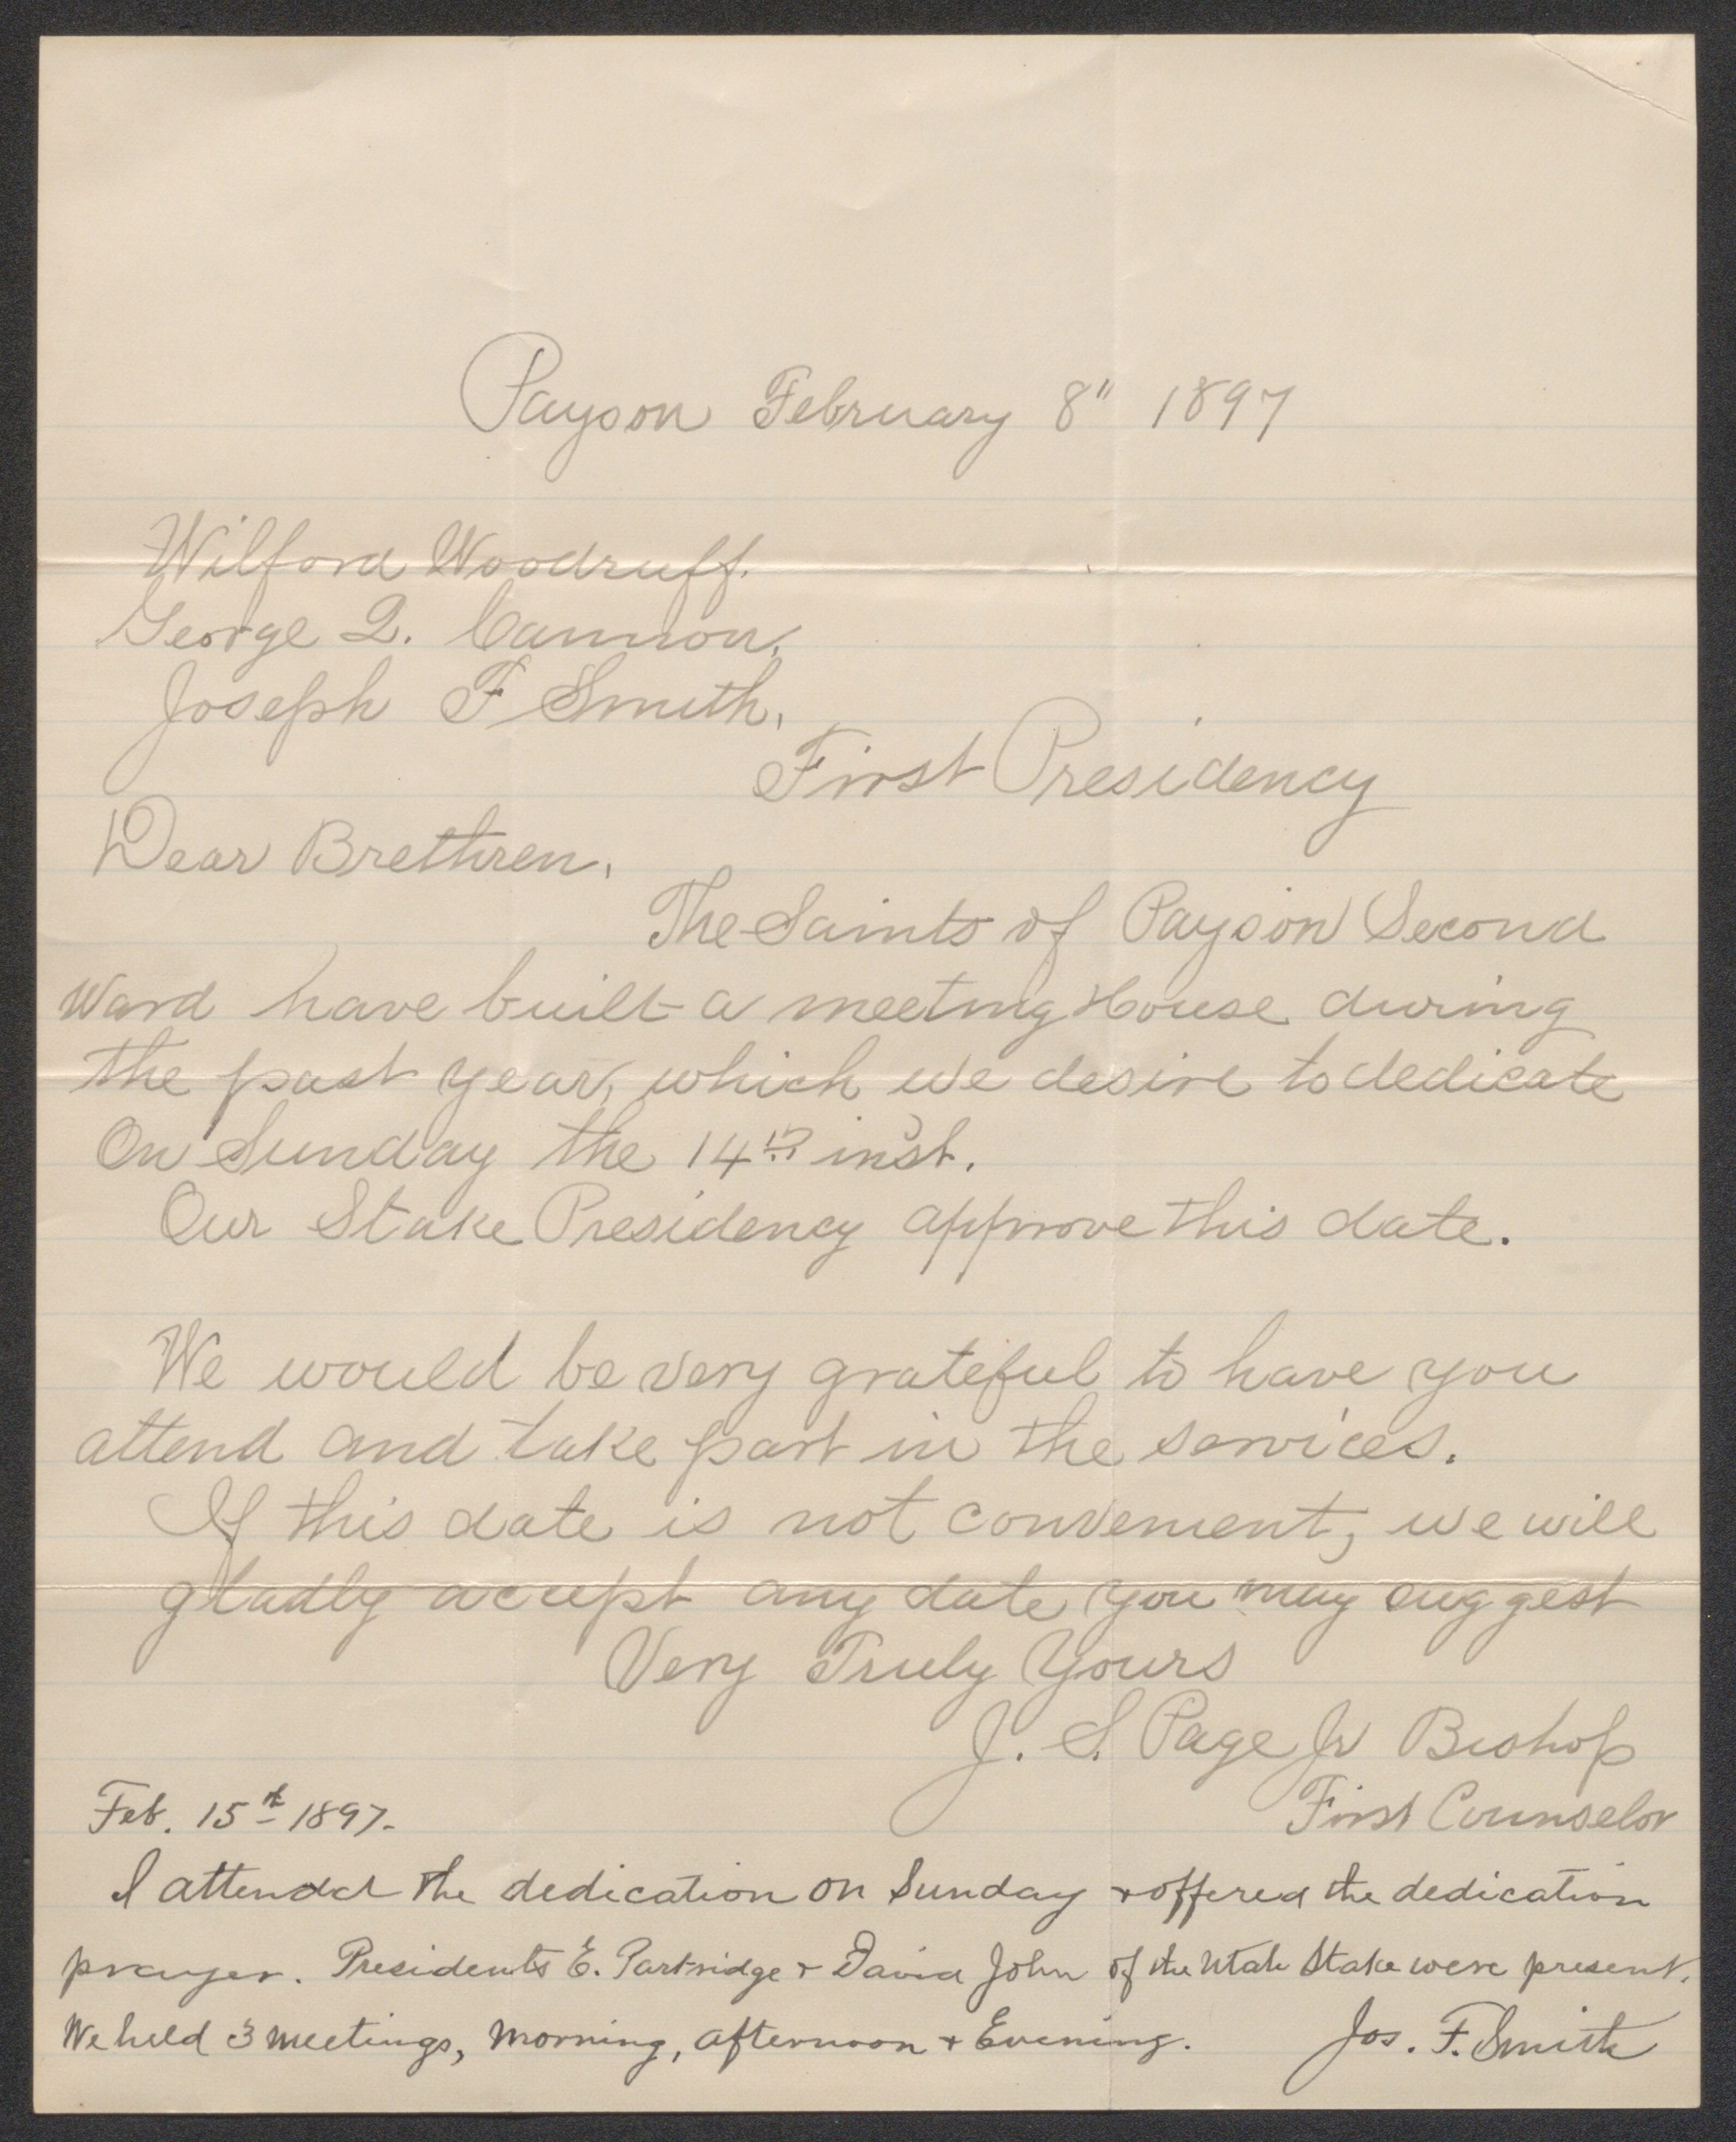 Payson February 8" 1897
Wilford Woodruff.
George Q. Cannon,
Joseph F Smith,
First Presidency
Dear Brethren,
The Saints of Payson Second
Ward have built a meeting House during
the past year, which we desire to dedicate
On Sunday the 14th inst.
Our Stake Presidency approve this date.
We would be very grateful to have you
attend and take part in the services.
If this date is not convenient, we will
gladly accept any date you may suggest
Very Truly Yours
J. S. Page Jr Bishop
First Counselor
Feb. 15th 1897.
I attended the dedication on Sunday & offered the dedication
prayer. Presidents E. Partridge & David John of the Utah Stake were present.
We held 3 meetings, Morning, afternoon & Evening. Jos. F. Smith